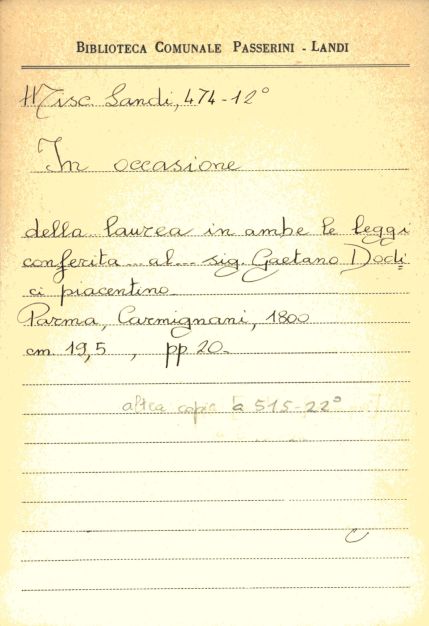 BIBLIOTECA COMUNALE PASSERINI - LANDI
Misc. Landi, 474-12°
In occasione
della laurea in ambe le leggi
conferita ... al ... sig. Gaetano Dodi=
ci piacentino.
Parma, Carmignani, 1800
cm. 19,5 , pp. 20.
altra copia a 515-22°
C